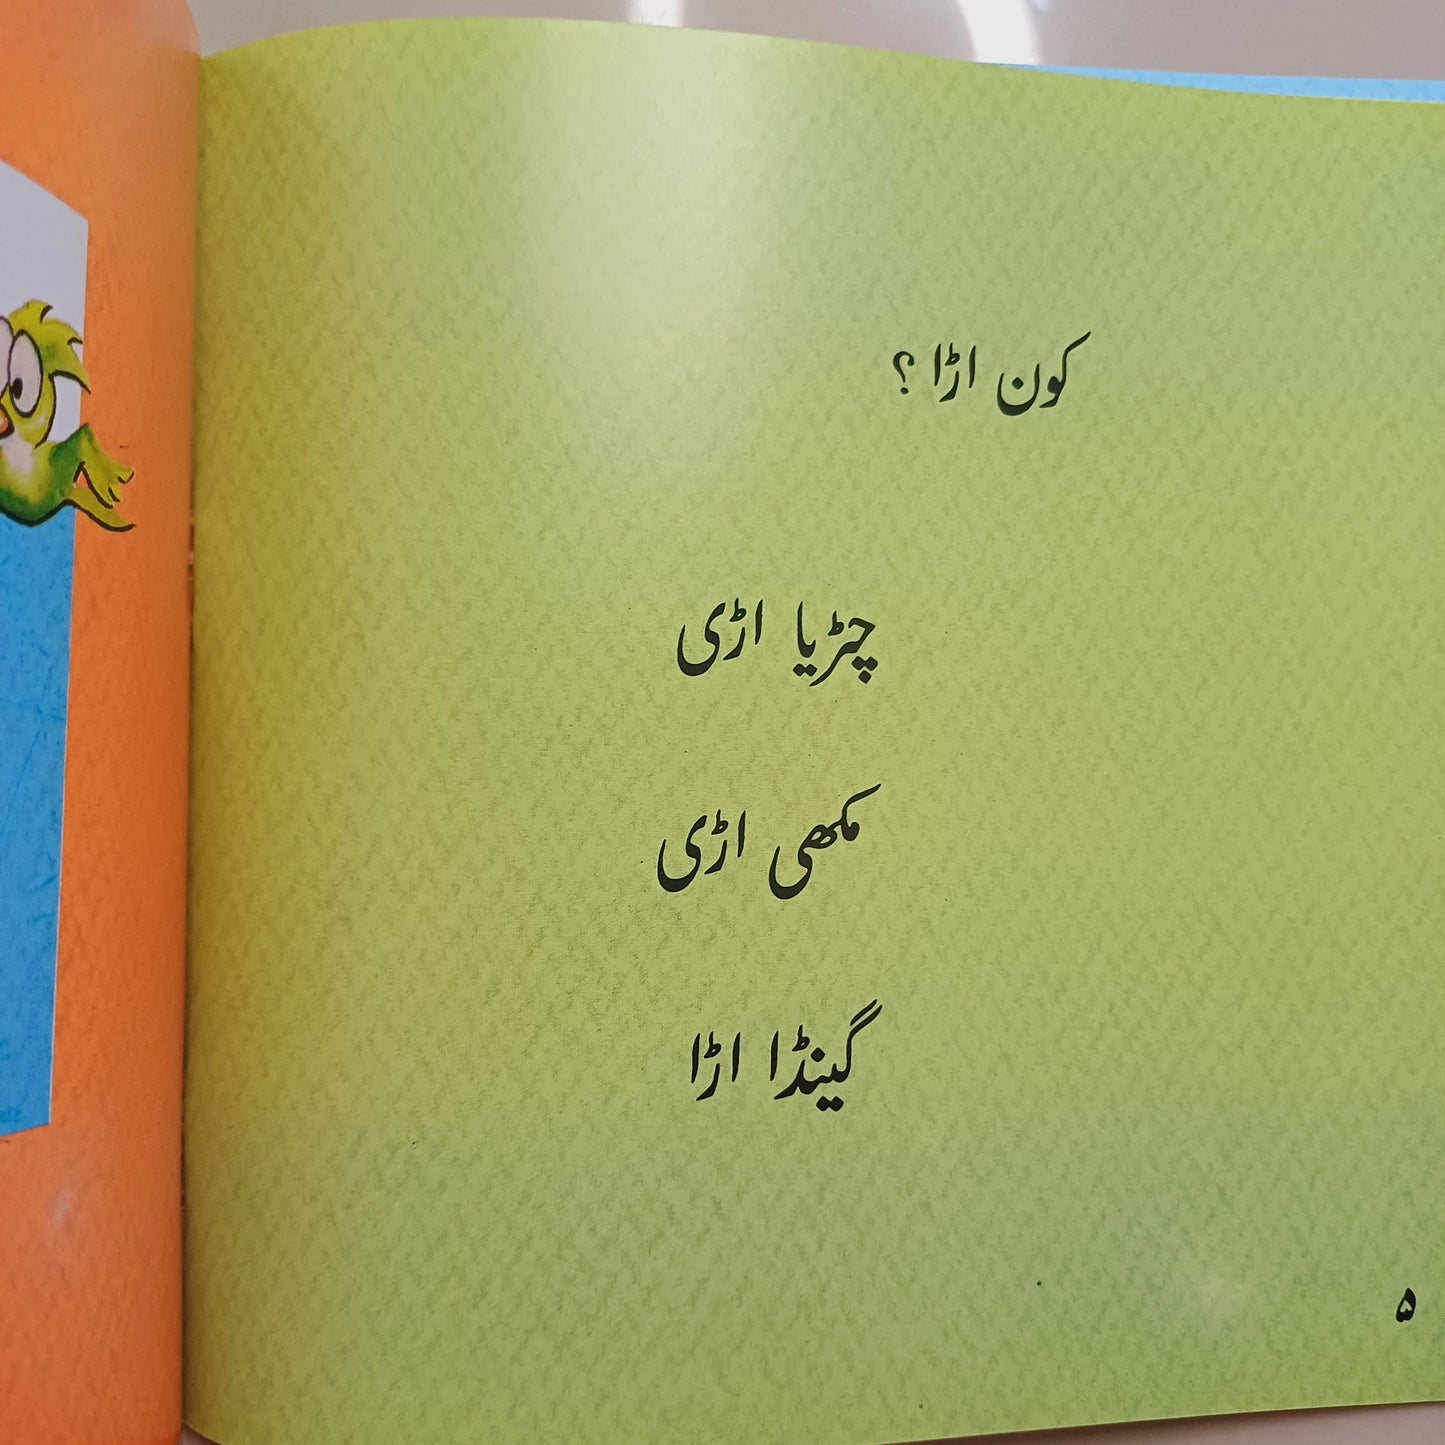 کون اڑا ؟
چڑیا اڑی
مکھی اڑی
گینڈا اڑا
۵